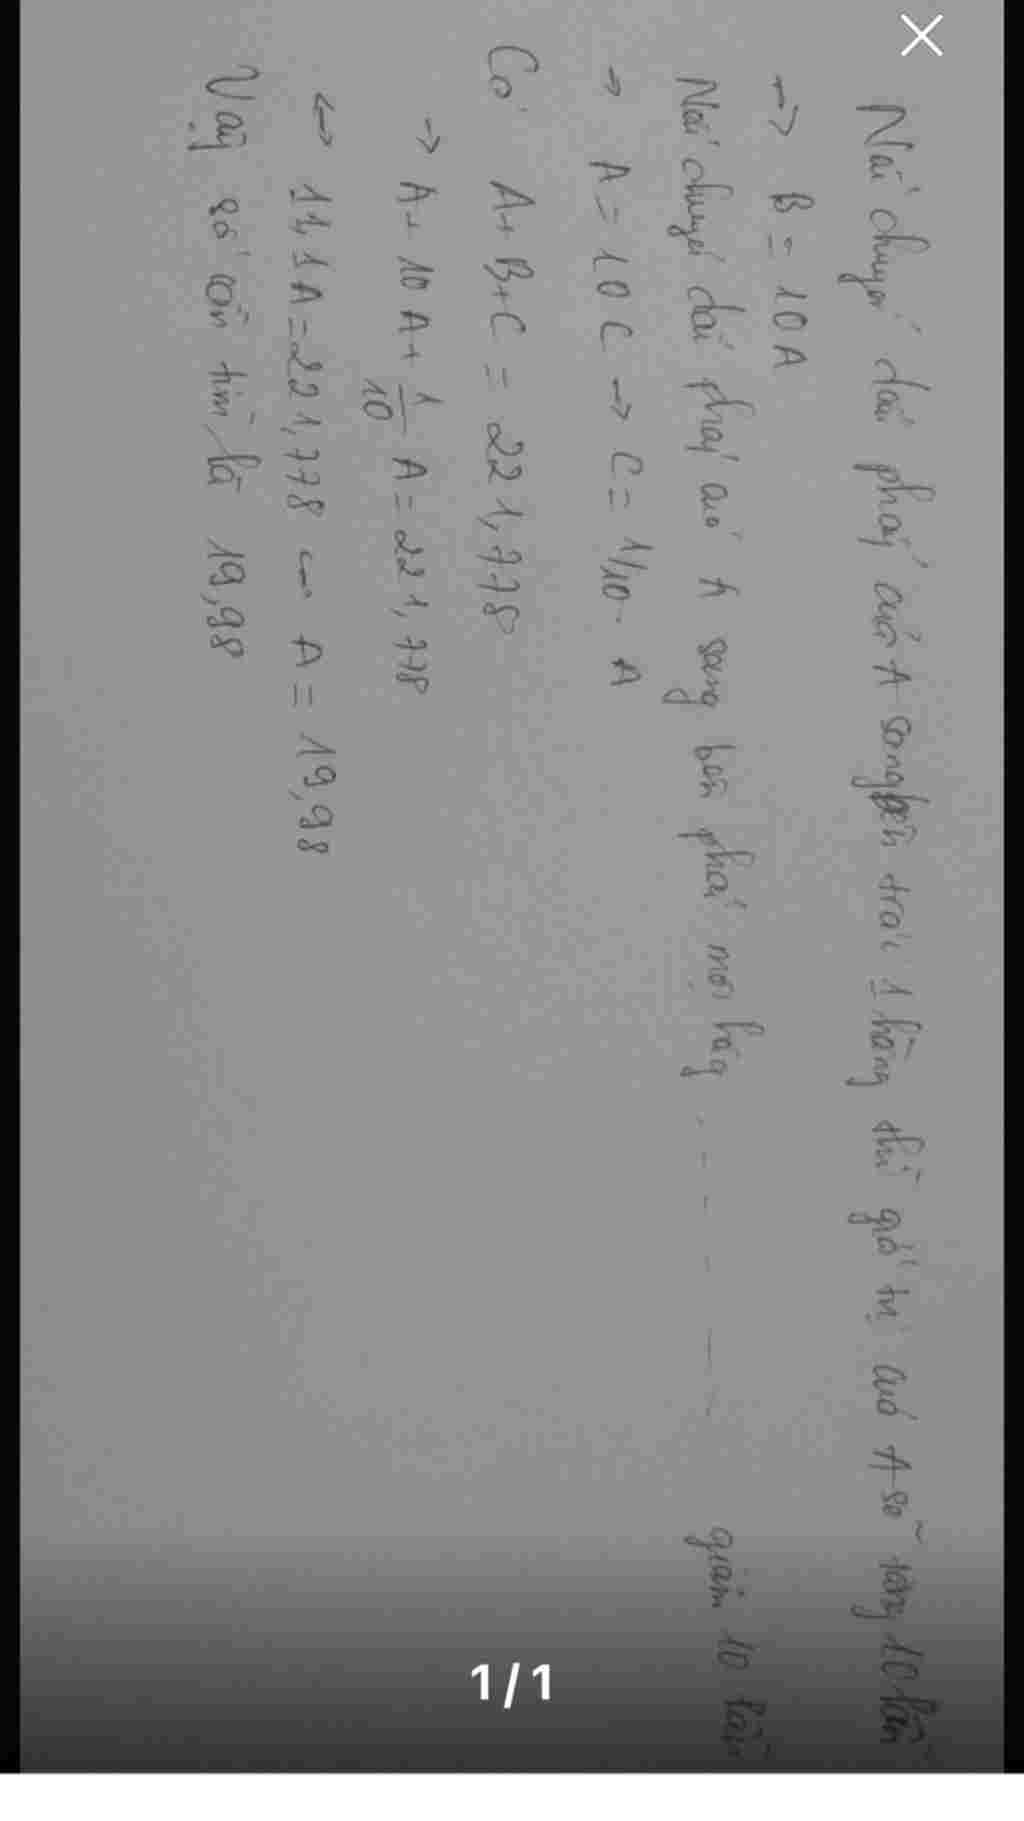 Nếu chuyển dấu phẩy của A sang bên trái 1 hàng thì giá trị của A sẽ tăng 10 lần
→ B = 10A
Nếu chuyển dấu phẩy của A sang bên phải một hàng - - - - - - giảm 10 lần
→ A = 10C → C = 1/10. A
Có A + B + C = 221,778
→ A + 10A + 1/10 A = 221,778
↔ 11,1A = 221,778 ↔ A = 19,98
Vậy số cần tìm là 19,98
1/1